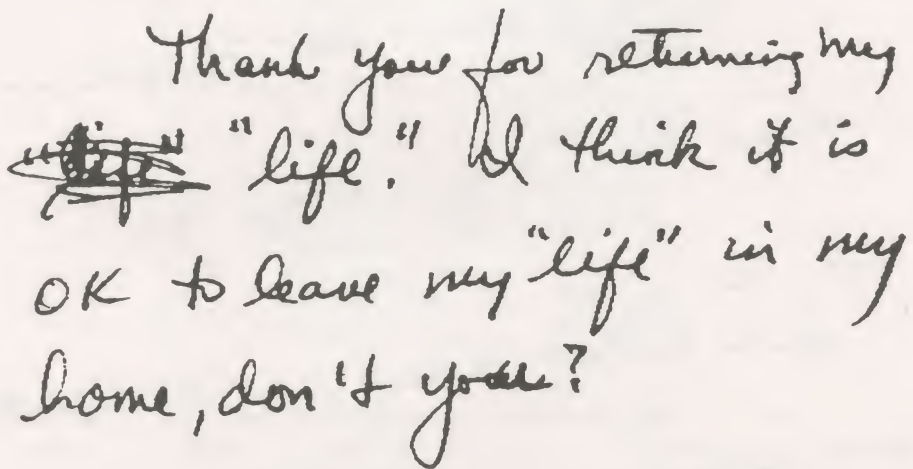 Thank you for returning my
"life." I think it is
OK to leave my "life" in my
home, don't you?